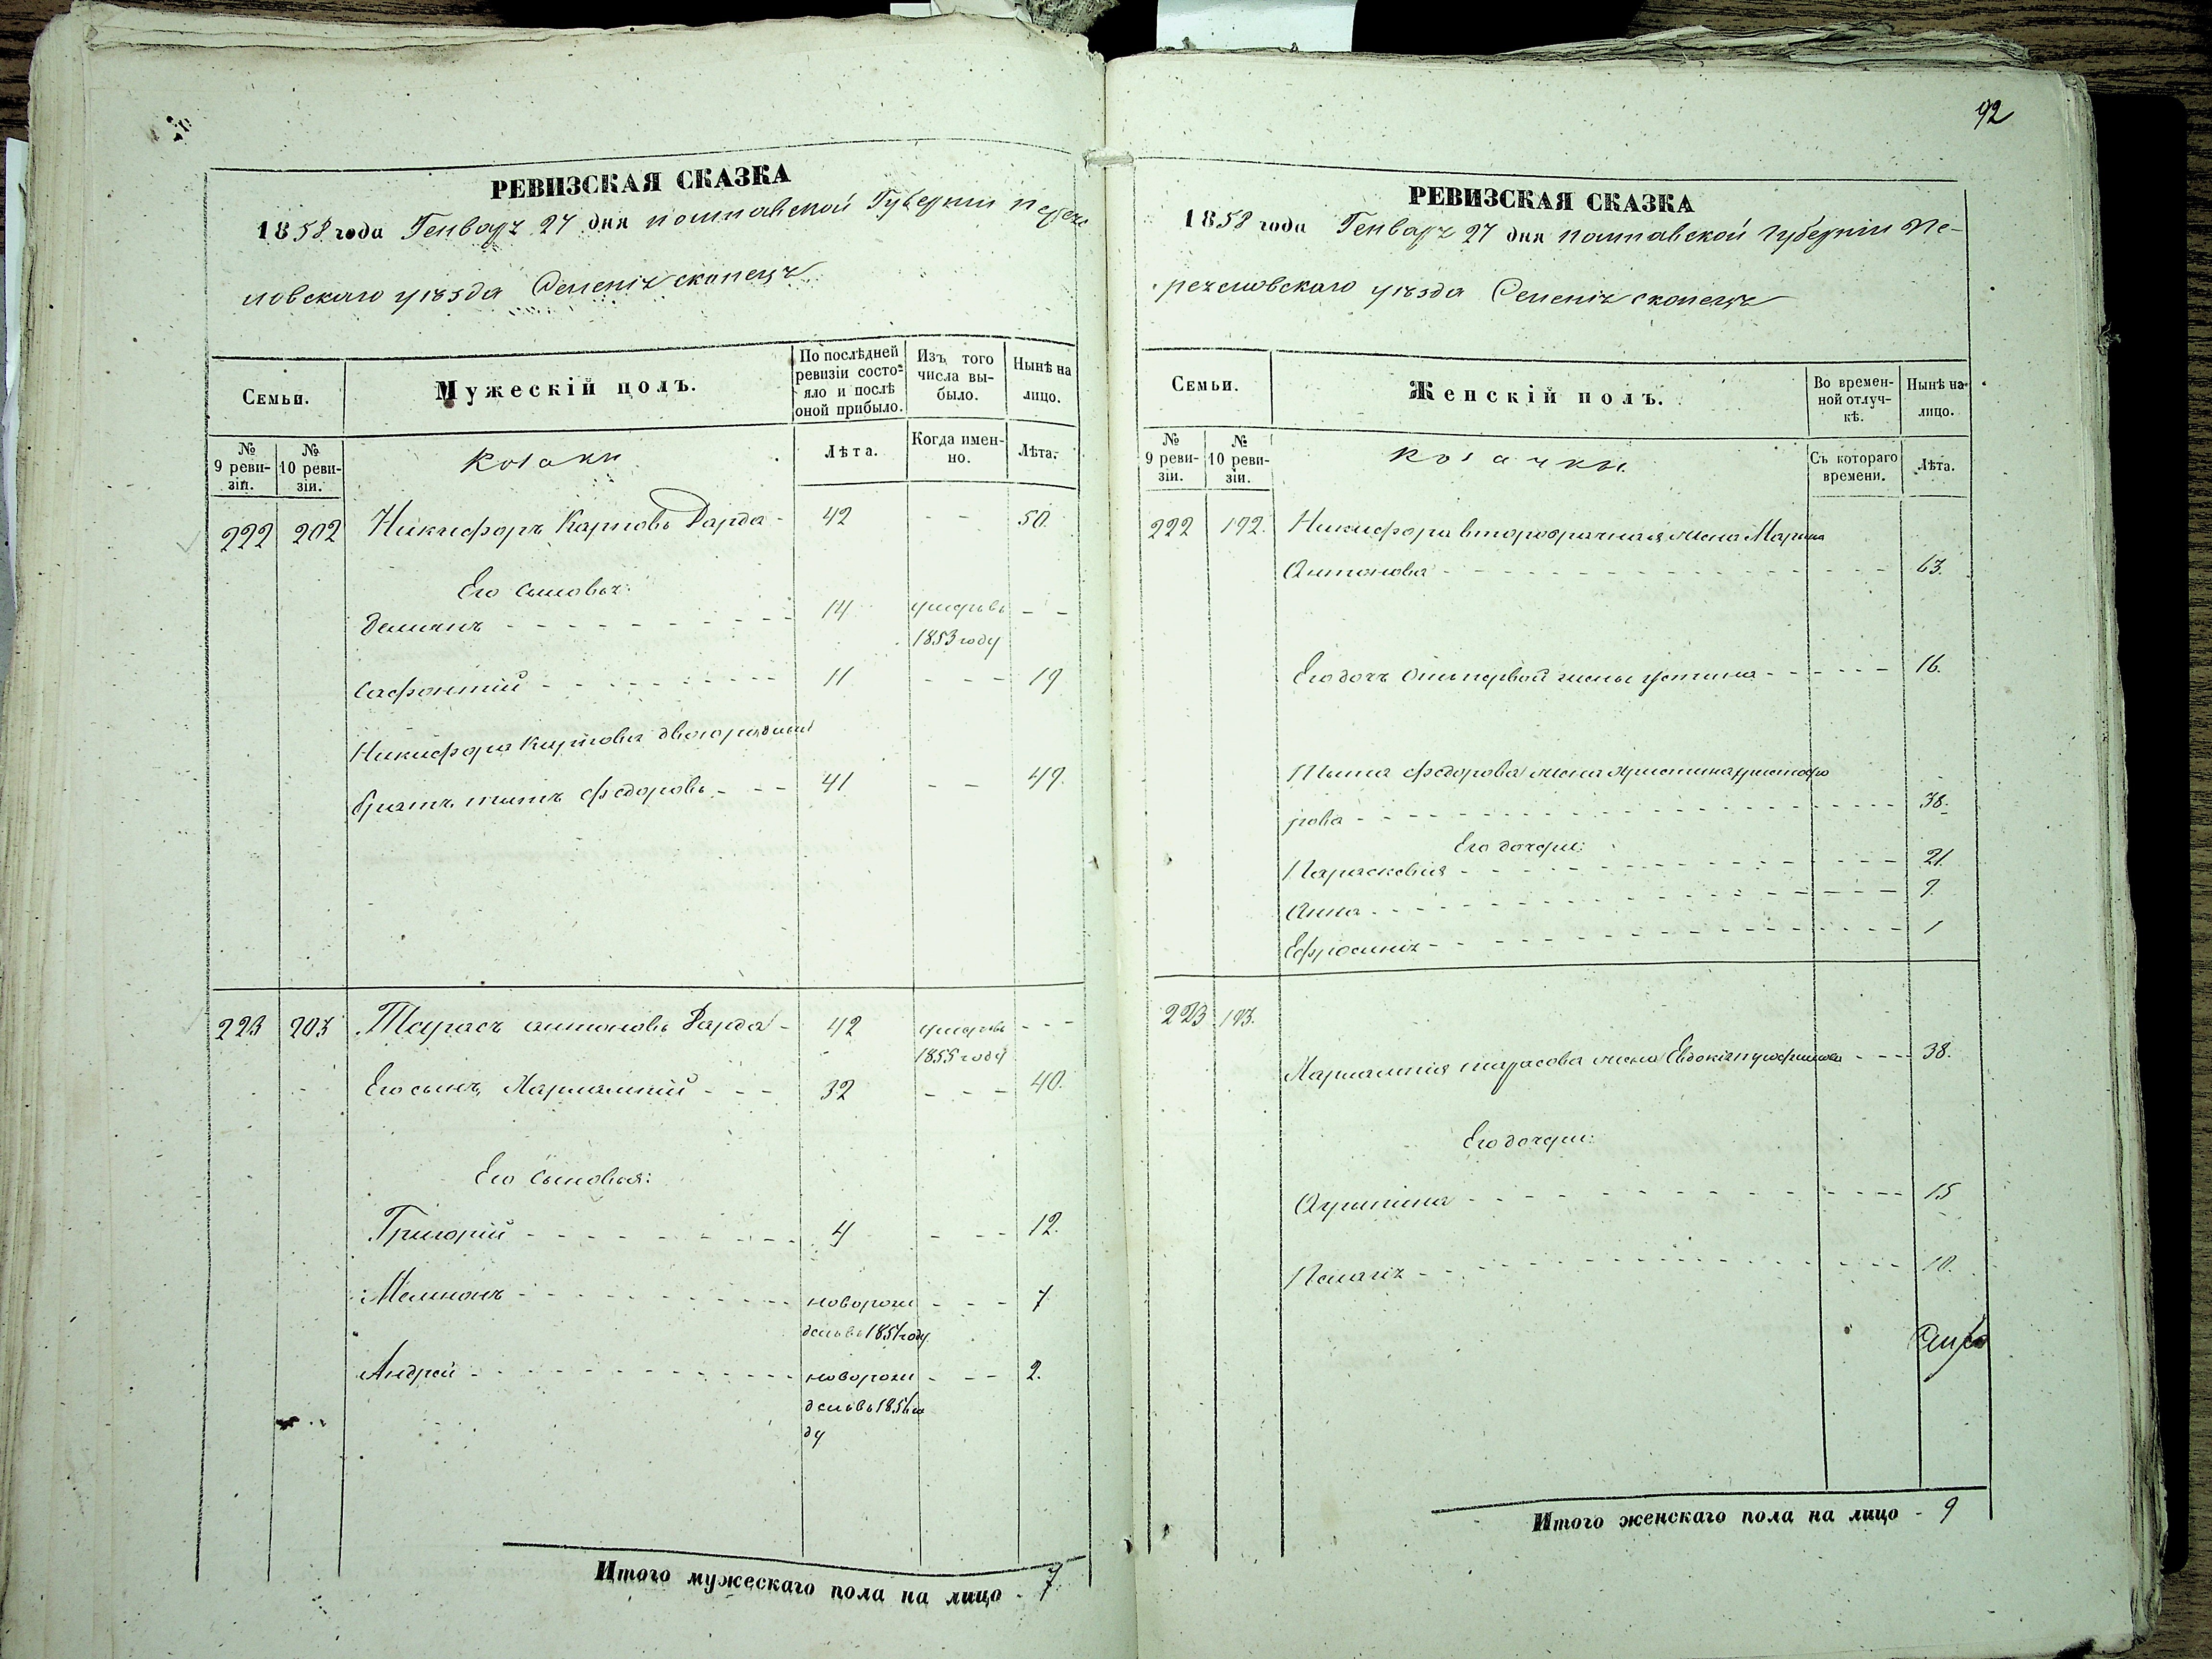 РЕВИЗСКАЯ СКАЗКА
1858 года Генваря 27 дня полтавской Губерніи Переяс
ловскаго уѣзда Селенія скопецъ
Семьи.
Мужескій полъ.
По послѣдней ревизіи состояло и послѣ оной прибыло.
Изъ того числа выбыло.
Нынѣ на лицо.
№ 9 ревизіи.
№ 10 ревизіи.
Козаки
Лѣта.
Когда именно.
Лѣта.
222 202 Никифоръ Карповъ Дарда - 42 - - 50.
Его сыновья:
Демянъ - - - 14 умеръ въ - -
1853 году
Сафонтій - - - 11 - - - 19
Никифора Карпова двоюродный
братъ титъ федоровъ - - - 41 - - 49.
223 203 Тарасъ антоновъ Дарда - 42 умеръ въ - - -
1855 году
Его сынъ, Харлампій - - - 32 - - - 40.
Его сыновья:
Григорій - - - 4 - - - 12.
Мемнонъ - - - новорож - - - 7
денъ въ 1851 году
Андрей - - - новорож - - - 2.
денъ въ 1856 го
ду
Итого мужескаго пола на лицо - 7.
92
РЕВИЗСКАЯ СКАЗКА
1858 года Генваря 27 дня полтавской Губерніи Пе-
реяславскаго уѣзда Селенія скопецъ
Семьи.
Женскій полъ.
Во временной отлучкѣ.
Нынѣ на лицо.
№ 9 ревизіи.
№ 10 ревизіи.
Козачки
Съ котораго времени.
Лѣта.
222 192. Никифора второбрачная жена Марина
Антонова - - - 63.
Его дочь отъ первой жены устина - - - 16.
Тита федорова жена христина христофо
рова - - - 38.
Его дочери:
Парасковия - - - 21.
Анна - - - 9.
Ефросинія - - - 1
223 193.
Харлампія тарасова жена Евдокія - - - 38.
Его дочери:
Агрипина - - - 15
Пелагія - - - 10.
Итого женскаго пола на лицо - 9